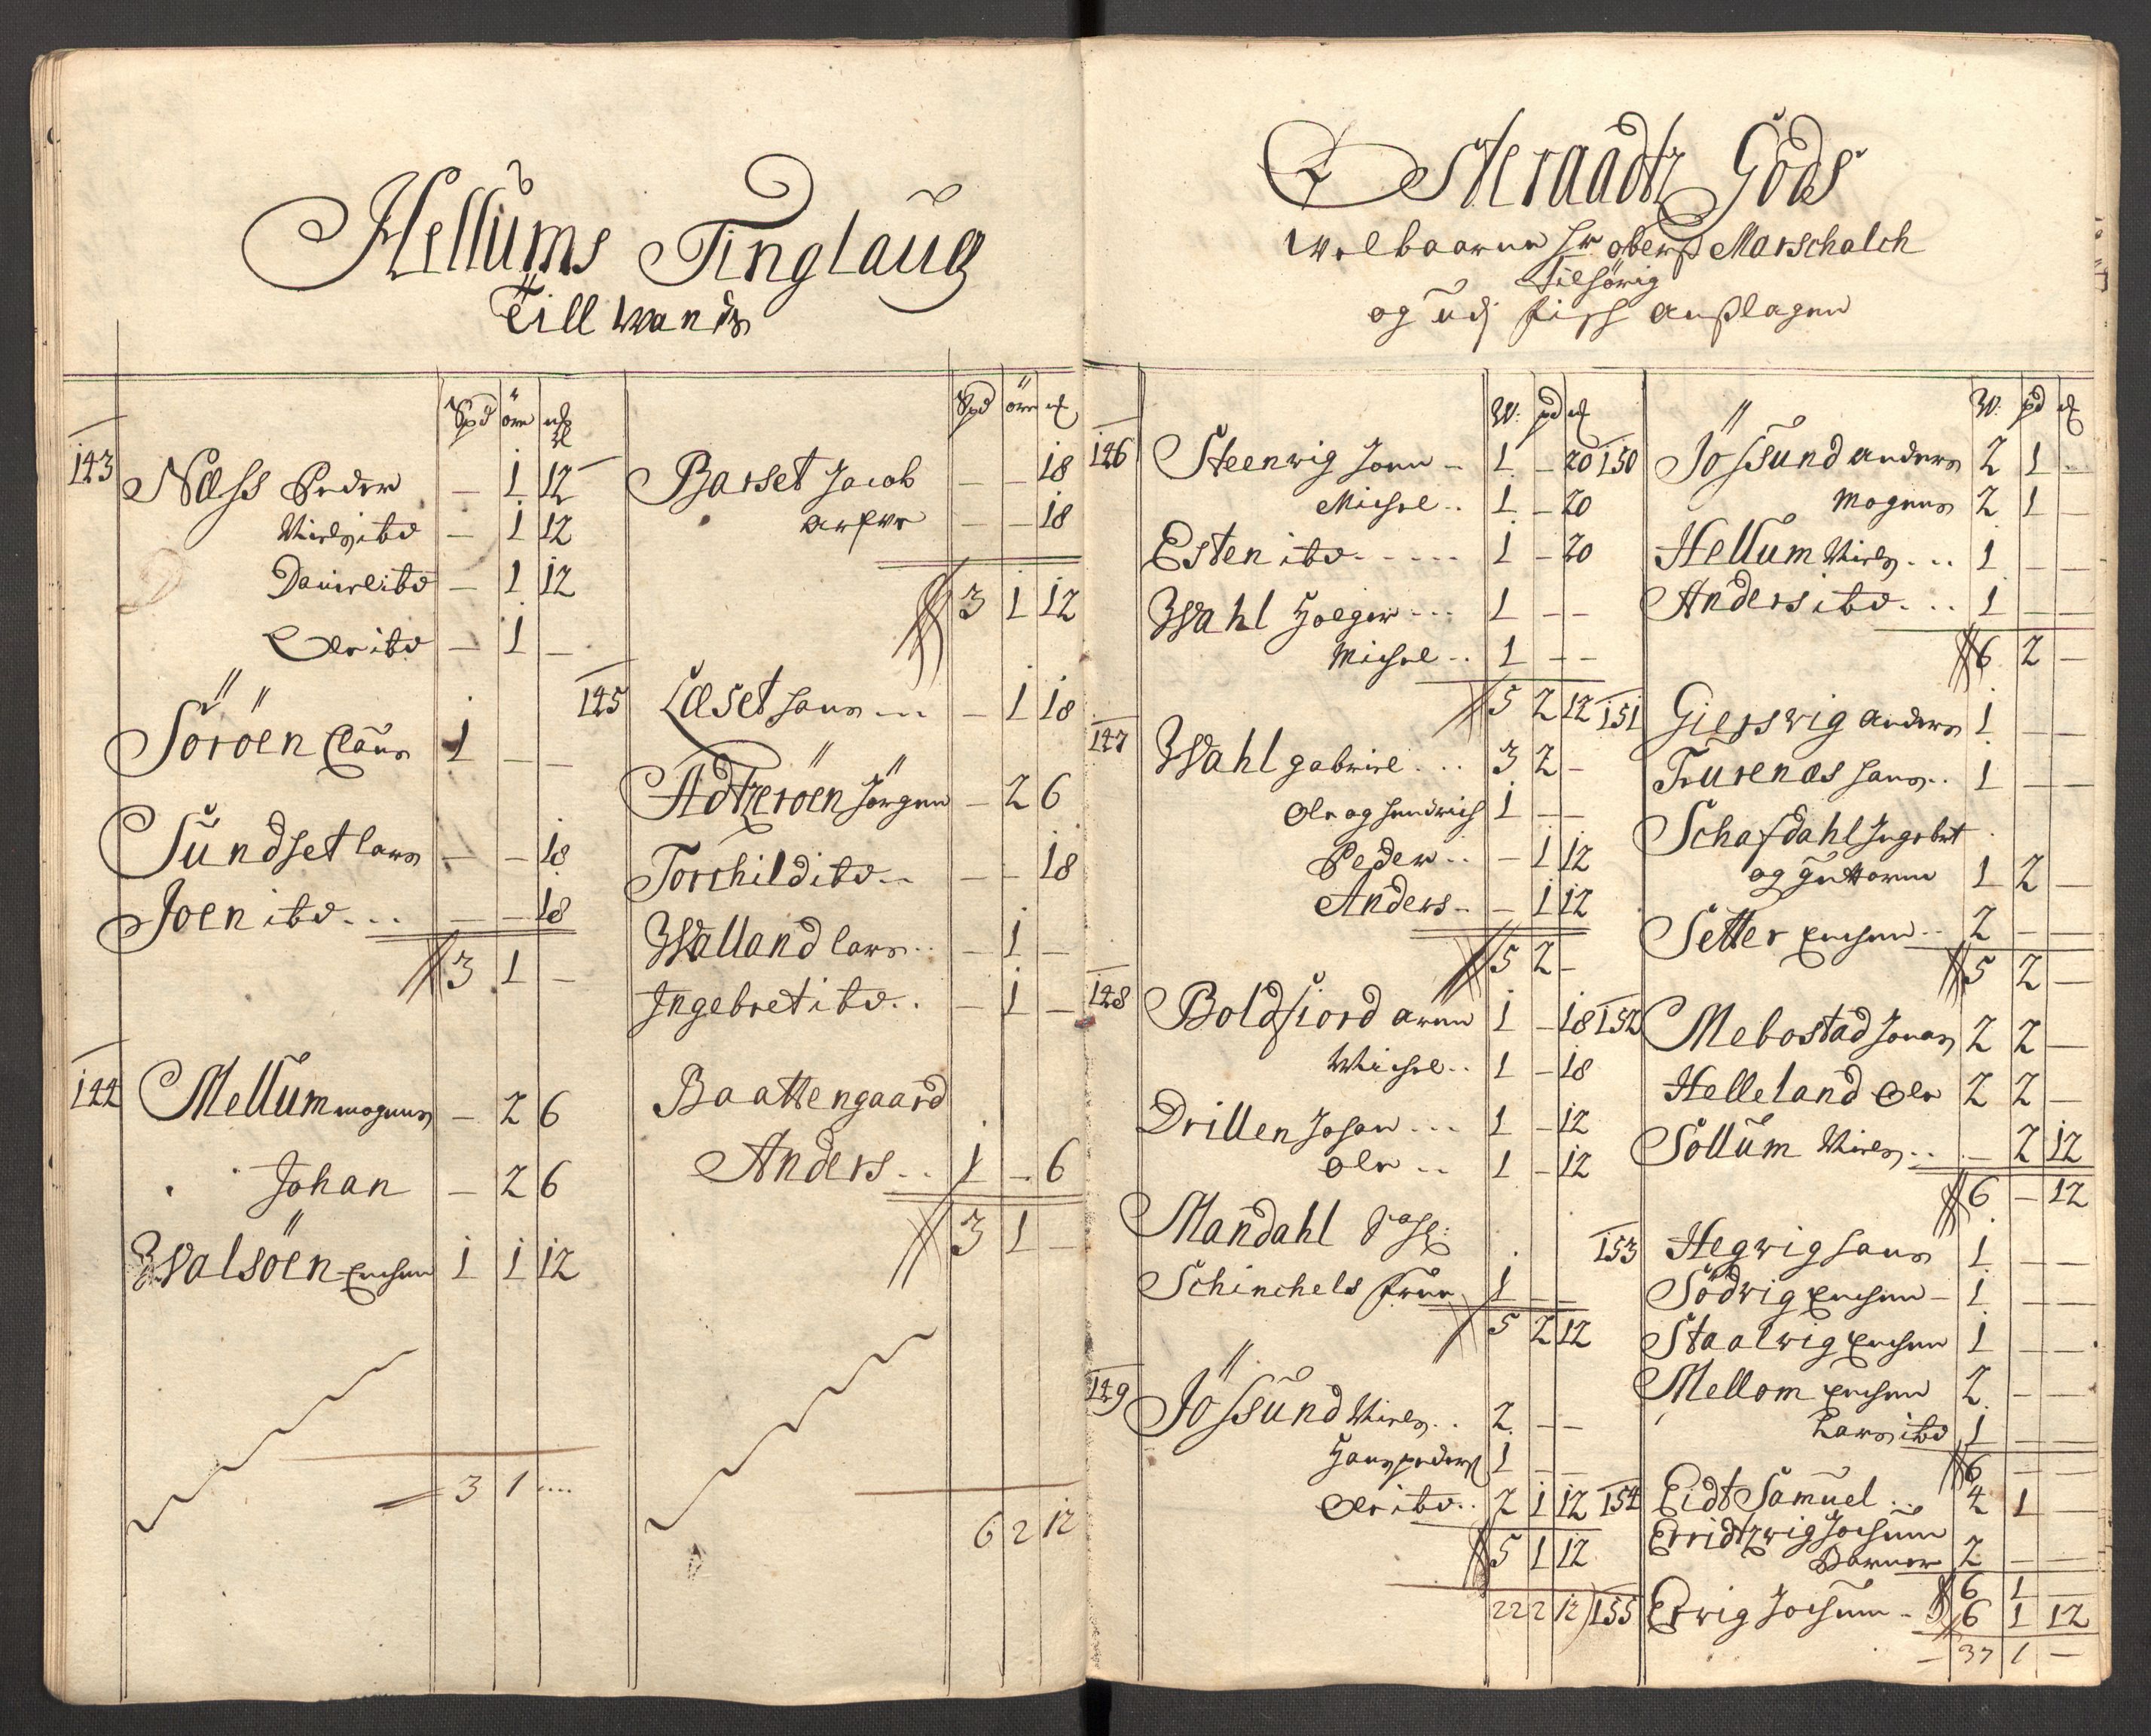 Hellums Tinglaug
Till wands
Spd öre mꝭl
143 Næss Peder — 1 12
Niels ibd — 1 12
Daniel ibd — 1 12
Ole ibd — 1 —
Söröen Claus 1 — —
Sundset Lars — — 18
Joen ibd — — 18
3 1 —
144 Mellum Mogens — 2 6
Johan — 2 6
Walsöen Erichsen 1 1 12
3 1 ....
Spd öre
Barset Jacob — — 18
— — 18
3 1 12
145 Læset Hans — 1 18
Adtzeröen Jörgen — 2 6
Torchild ibd — — 18
Walland Lars — 1 —
Ingebret ibd — 1 —
Baattengaard
Anders 1 — 6
3 1 —
6 2 12
Østeraadtz Gods
Welbaarne Hr oberst Marschalch
tilhörig
og udj fisch anslagen
W: pd
146 Steenwig Jonn 1 — 20
Michel 1 — 20
Esten ibd 1 — 20
Wahl Holger 1 — —
Michel 1 — —
5 2 12
147 Wahl gabriel 3 2 —
Ole og Hendrich 1 — —
Peder — 1 12
Anders — 1 12
5 2 —
148 Boldfiord Arne 1 — 18
Michel 1 — 18
Drillen Johan 1 — 12
Ole 1 — 12
Mandahl
Schinchels Frue 1 — —
5 2 12
149 Jössund Niels 2 — —
Hans Peders 1 — —
Ole ibd 2 1 12
5 1 12
22 2 12
W: pd
150 Jössund Anders 2 1 —
Mogens 2 1 —
Hellum Niels 1 — —
Anders ibd 1 — —
6 2 —
151 Gierswig Anders 1 — —
Furenæs Hans 1 — —
Schafdahl Ingebret
og Guttorm 1 2 —
Setter Erichsen 2 — —
5 2 —
152 Mebostad Jonas 2 2 —
Helleland Ole 2 2 —
Sollum Niels — 2 12
6 — 12
153 Hegwig Hans 1 — —
Södwig Erichsen 1 — —
Staalwig Erichsen 1 — —
Mellom Erichsen 2 — —
Lars ibd 1 — —
6 — —
154 Eidt Samuel 4 1 —
Erridtzwig Jochum
Werner 2 — —
6 1 —
155 Erwig Jochum 6 1 12
37 1 —